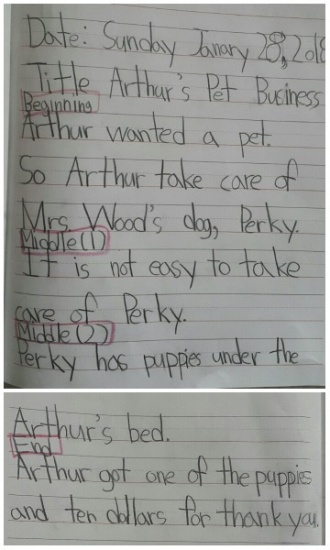 Date: Sunday Janary 28, 2018
Title Arthur's Pet Business
Beginning
Arthur wanted a pet.
So Arthur take care of
Mrs. Wood's dog, Perky.
Middle(1)
It is not easy to take
care of Perky.
Middle(2)
Perky has puppies under the
Arthur's bed.
End
Arthur got one of the puppies
and ten dollars for thank you.